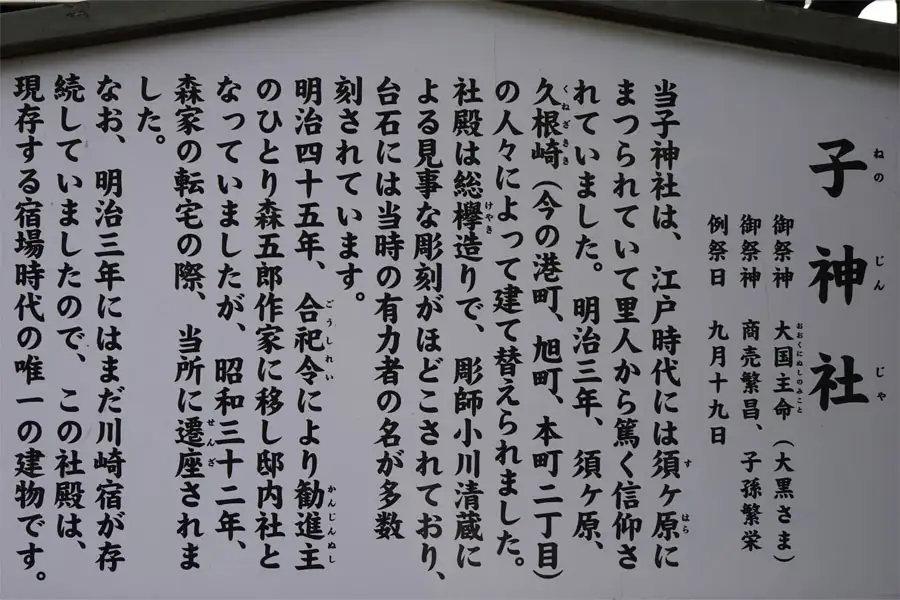 子神社
御祭神　大国主命（大黒さま）
御祭神　商売繁昌、子孫繁栄
例祭日　九月十九日
当子神社は、江戸時代には須ヶ原に
まつられていて里人から篤く信仰さ
れていました。明治三年、須ヶ原、
久根崎（今の港町、旭町、本町二丁目）
の人々によって建て替えられました。
社殿は総欅造りで、彫師小川清蔵に
よる見事な彫刻がほどこされており、
台石には当時の有力者の名が多数
刻されています。
明治四十五年、合祀令により勧進主
のひとり森五郎作家に移し邸内社と
なっていましたが、昭和三十二年、
森家の転宅の際、当所に遷座されま
した。
なお、明治三年にはまだ川崎宿が存
続していましたので、この社殿は、
現存する宿場時代の唯一の建物です。